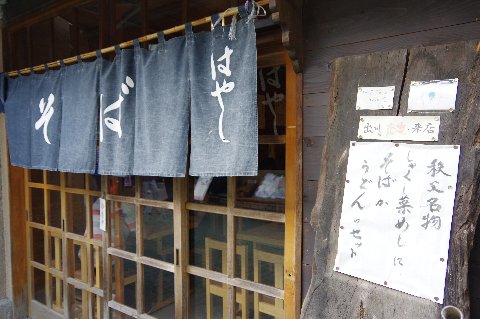 そば
はやし
出川
来店
秩父名物
しゃくし菜めしに
そばか
うどんのセット